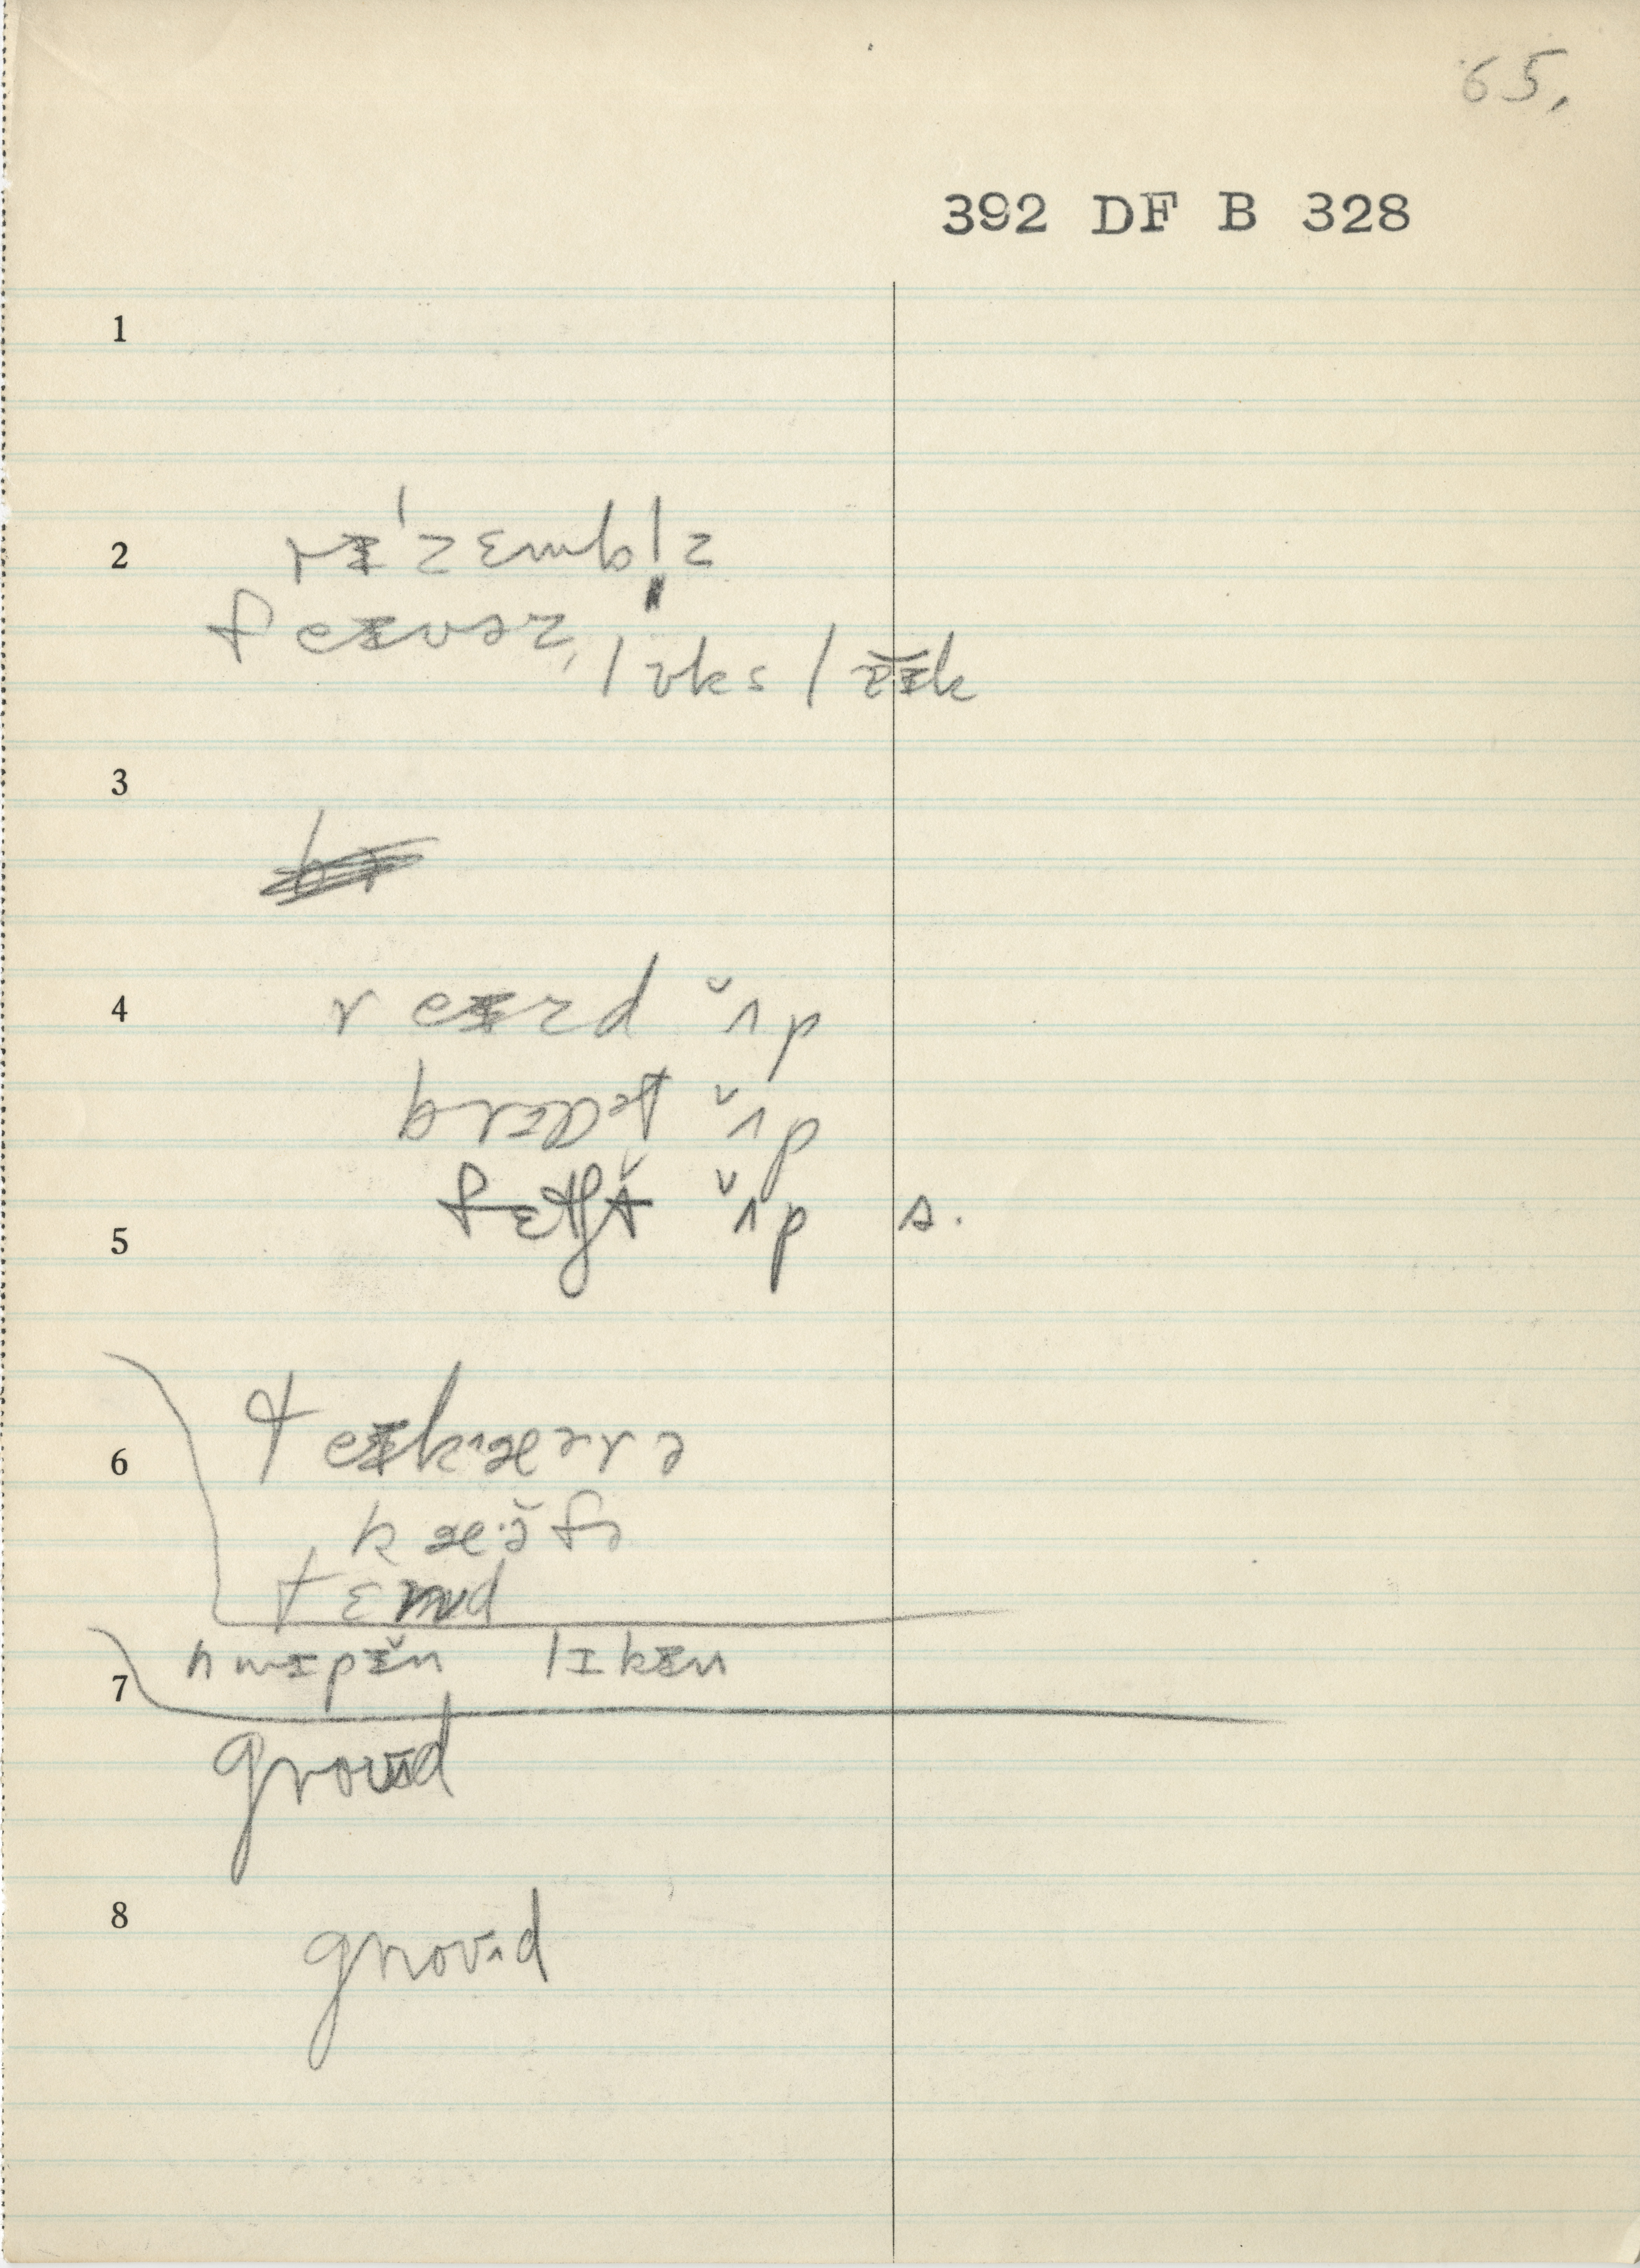 65.
392 DF B 328
1
2 rɪ'zɛmbl̩z
feɪvəz, lʊks lɪ̆k
3
4 reɪzd ʌ̆p
brɔət ʌ̆p
fɛtʃt ʌ̆p s.
5
6 teɪkæərə
kæ·ə̆fə
tɛnd
7 hwɪpɪ̆n lɪkɪn
groʊʌd
8 groʊʌd